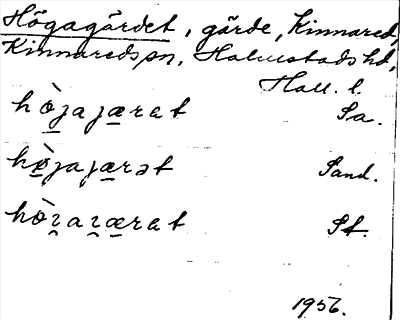 Högagärdet, gärde, Kinnared,
Kinnaredspn, Halmstadshd,
Hall. l.
hò̱jajæ̱rat Sa.
hò̱jajæ̱rət Sand.
hò̱ʓaʓæ̱rat St.
1956.